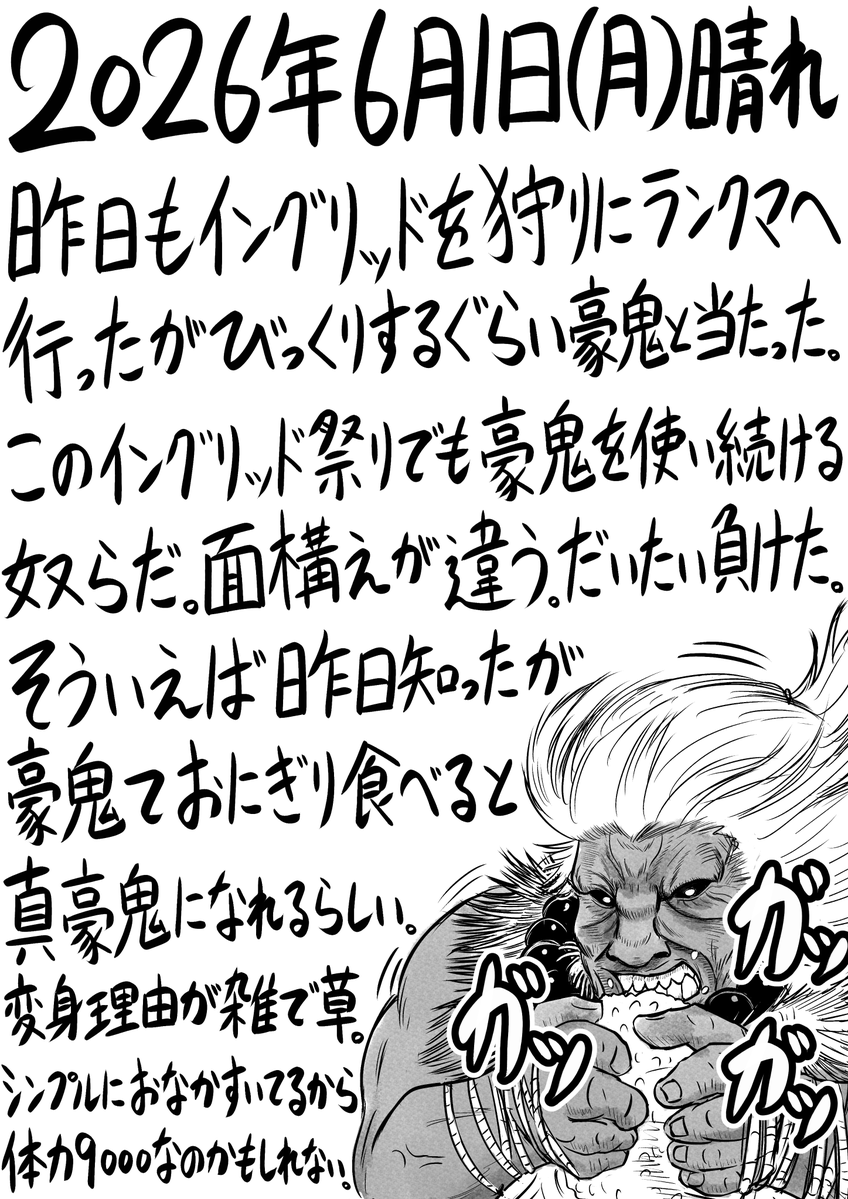 2026年6月1日(月)晴れ
昨日もイングリッドを狩りにランクマへ
行ったがびっくりするぐらい豪鬼と当たった。
このイングリッド祭りでも豪鬼を使い続ける
奴らだ。面構えが違う。だいたい負けた。
そういえば昨日知ったが
豪鬼ておにぎり食べると
真豪鬼になれるらしい。
変身理由が雑で草。
シンプルにおなかすいてるから
体力9000なのかもしれない。
ガッ
ガッ
ガッ